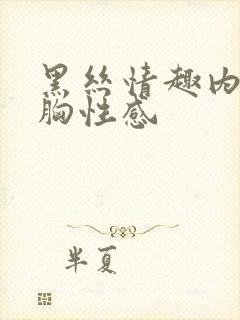 黑丝情趣内
胸性感
半夏